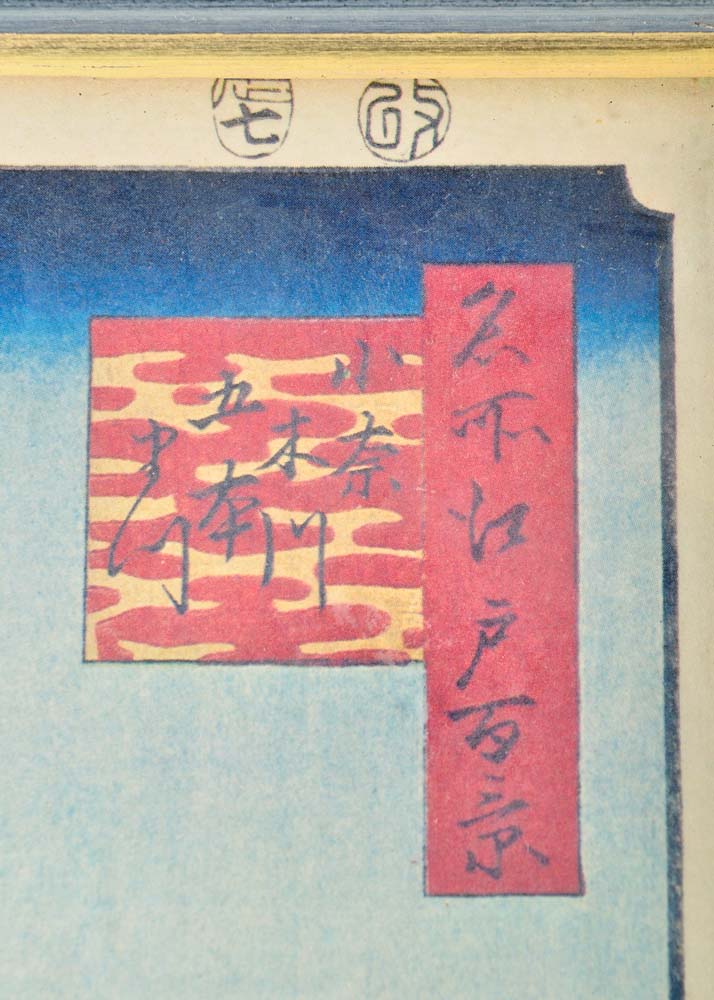 改
七
名所江戸百景
小奈
木川
五本
まつ